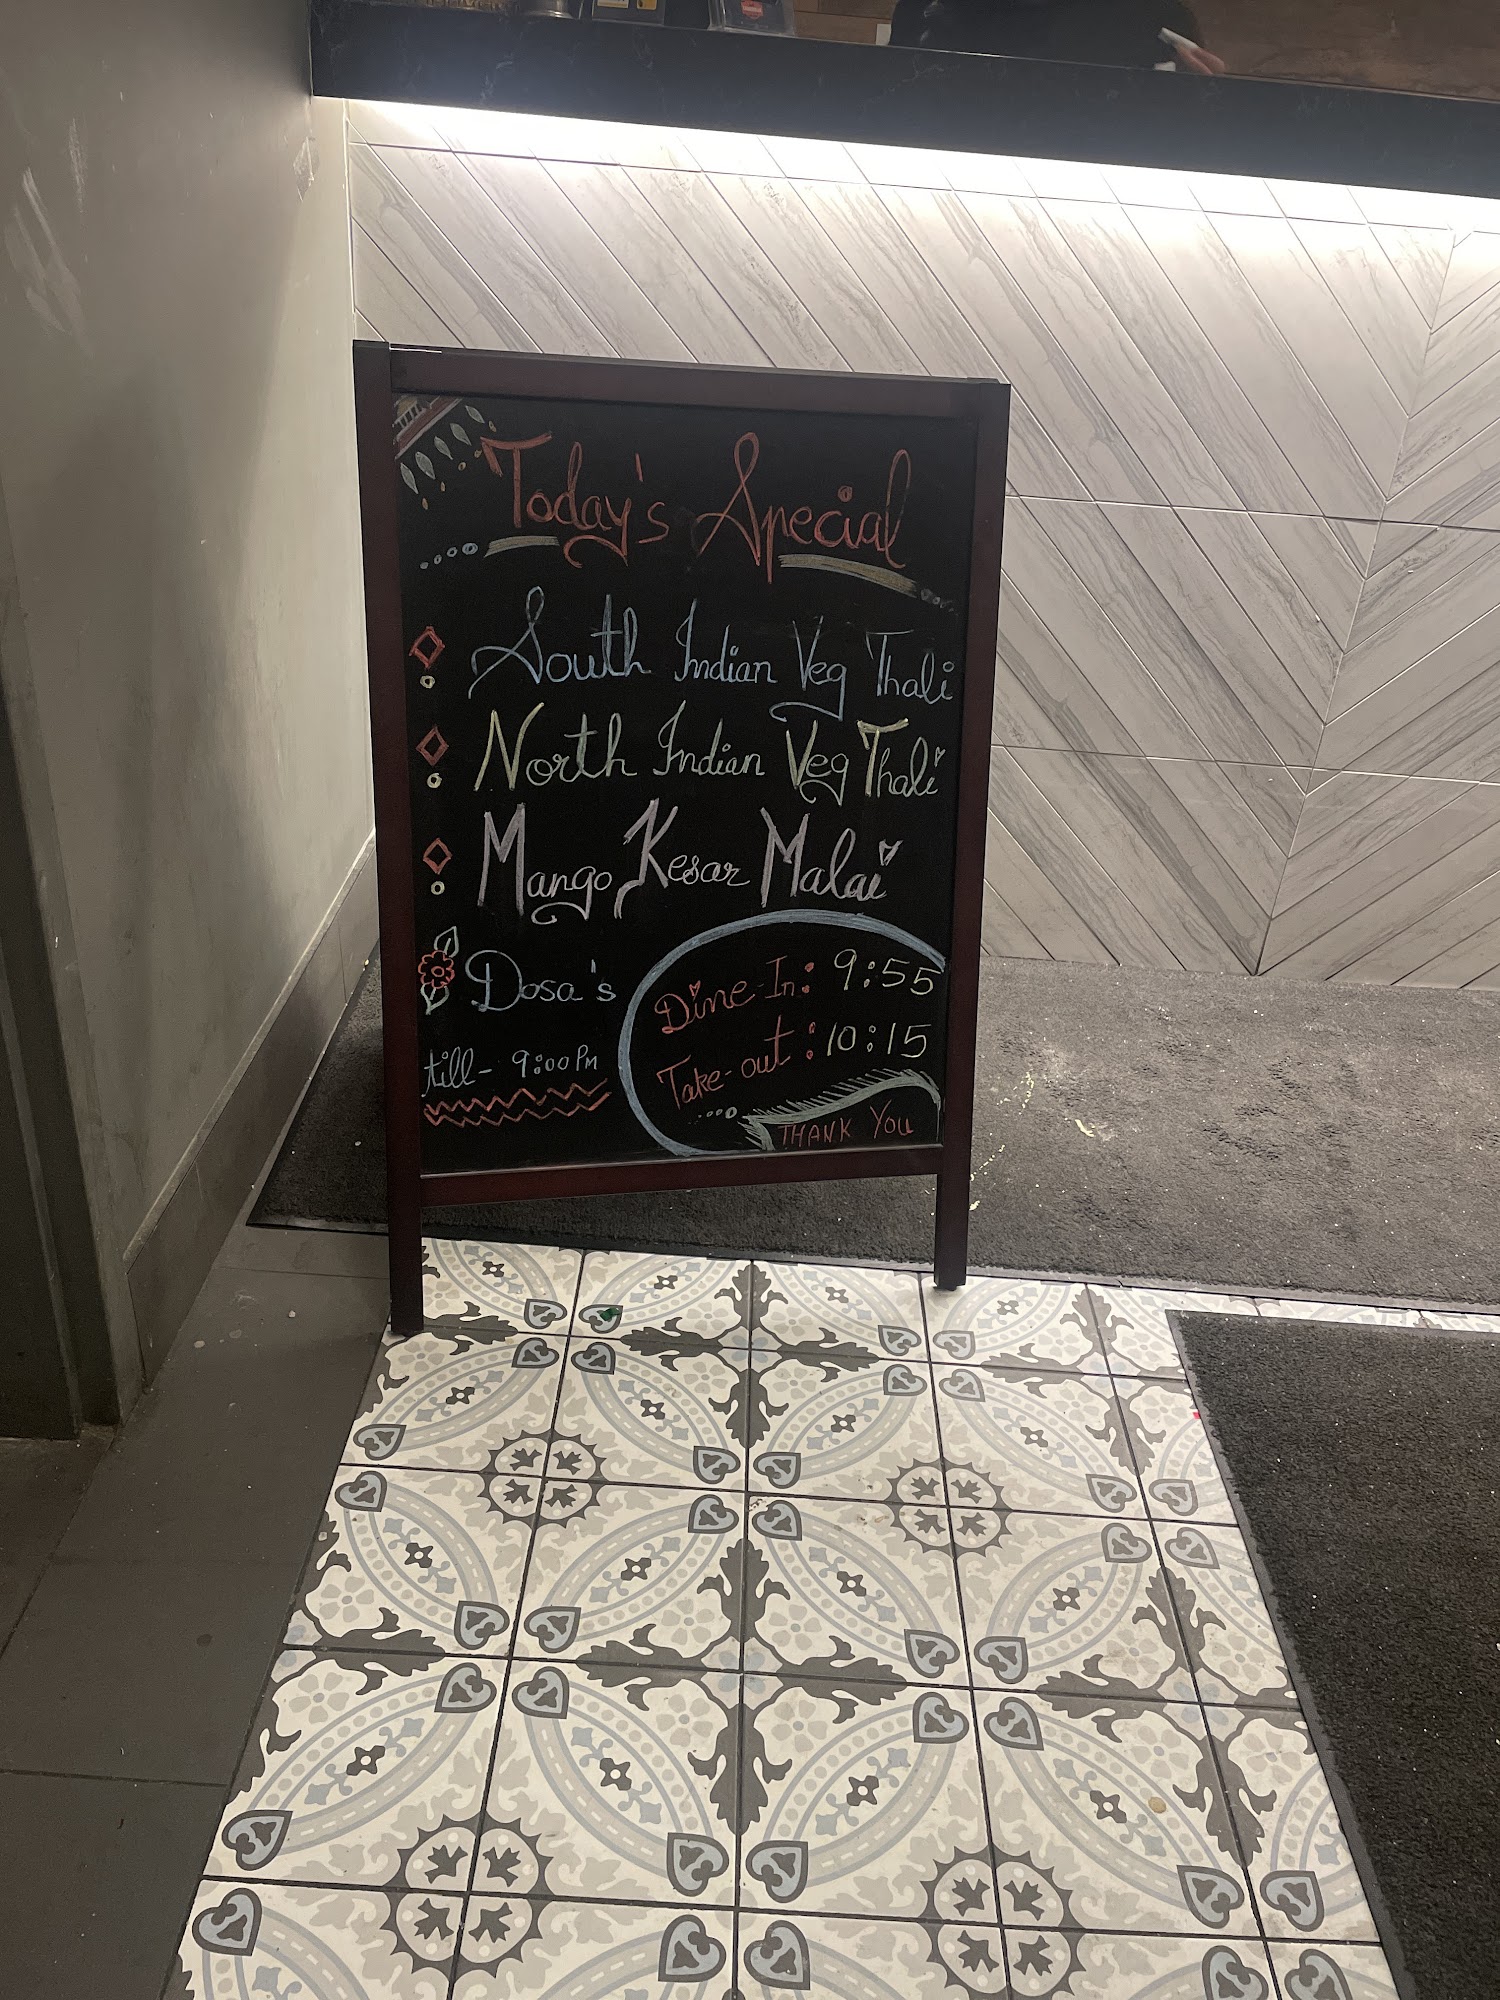 Today's Special
South Indian Veg Thali
North Indian Veg Thali
Mango Kesar Malai
Dosa's
till - 9:00 PM
Dine-In: 9:55
Take-out: 10:15
THANK YOU